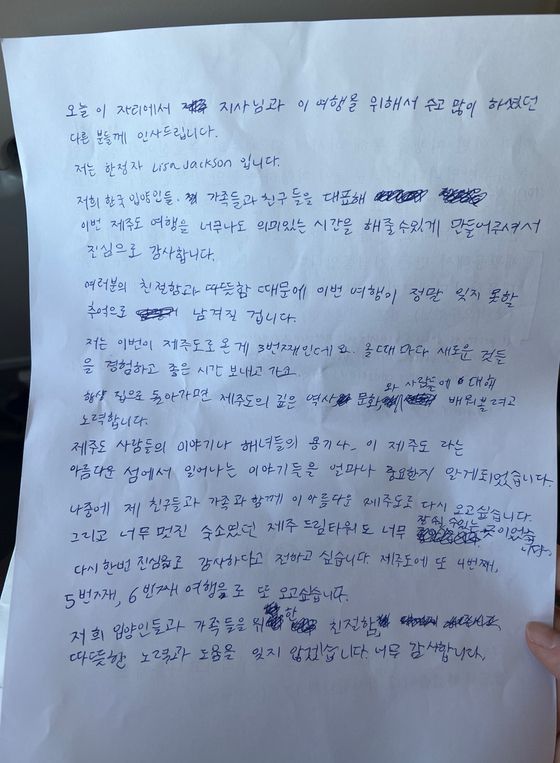 오늘 이 자리에서 지사님과 이 여행을 위해서 수고 많이 하셨던
다른 분들께 인사드립니다.
저는 한정자 Lisa Jackson 입니다.
저희 한국 입양인들, 가족들과 친구들을 대표해
이번 제주도 여행을 너무나도 의미있는 시간을 해줄수있게 만들어주셔서
진심으로 감사합니다.
여러분의 친절함과 따뜻함 때문에 이번 여행이 정말 잊지 못할
추억으로 남겨질 겁니다.
저는 이번이 제주도로 온게 3번째인데요. 올때마다 새로운 것들
을 경험하고 좋은 시간 보내고 가요.
항상 집으로 돌아가면 제주도의 깊은 역사 문화, 와 사람들에 대해 배워볼려고
노력합니다.
제주도 사람들의 이야기나 해녀들의 용기나 이 제주도 라는
아름다운 섬에서 일어나는 이야기들을 얼마나 중요한지 알게되었습니다.
나중에 제 친구들과 가족과 함께 이 아름다운 제주도로 다시 오고싶습니다.
그리고 너무 멋진 숙소였던 제주 드림타워도 너무 곳이었습니다.
다시 한번 진심으로 감사하다고 전하고 싶습니다. 제주도에 또 4번째,
5번째, 6번째 여행을로 또 오고싶습니다.
저희 입양인들과 가족들을 위한 친절함,
따뜻한 노력과 도움을 잊지 않겠습니다. 너무 감사합니다.